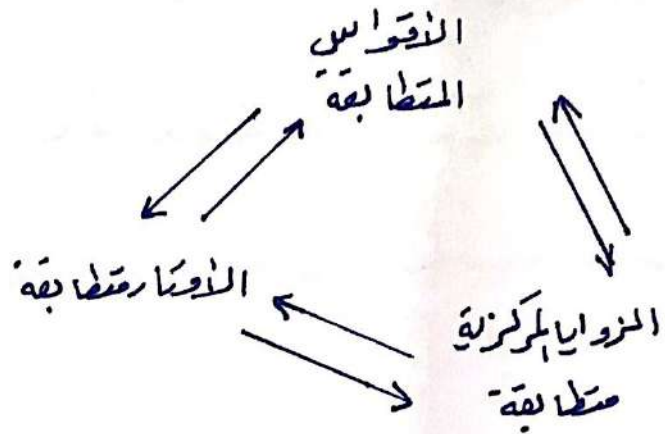 الأقواس
المتطابقة
الأوتار متطابقة
الزوايا المركزية
متطابقة